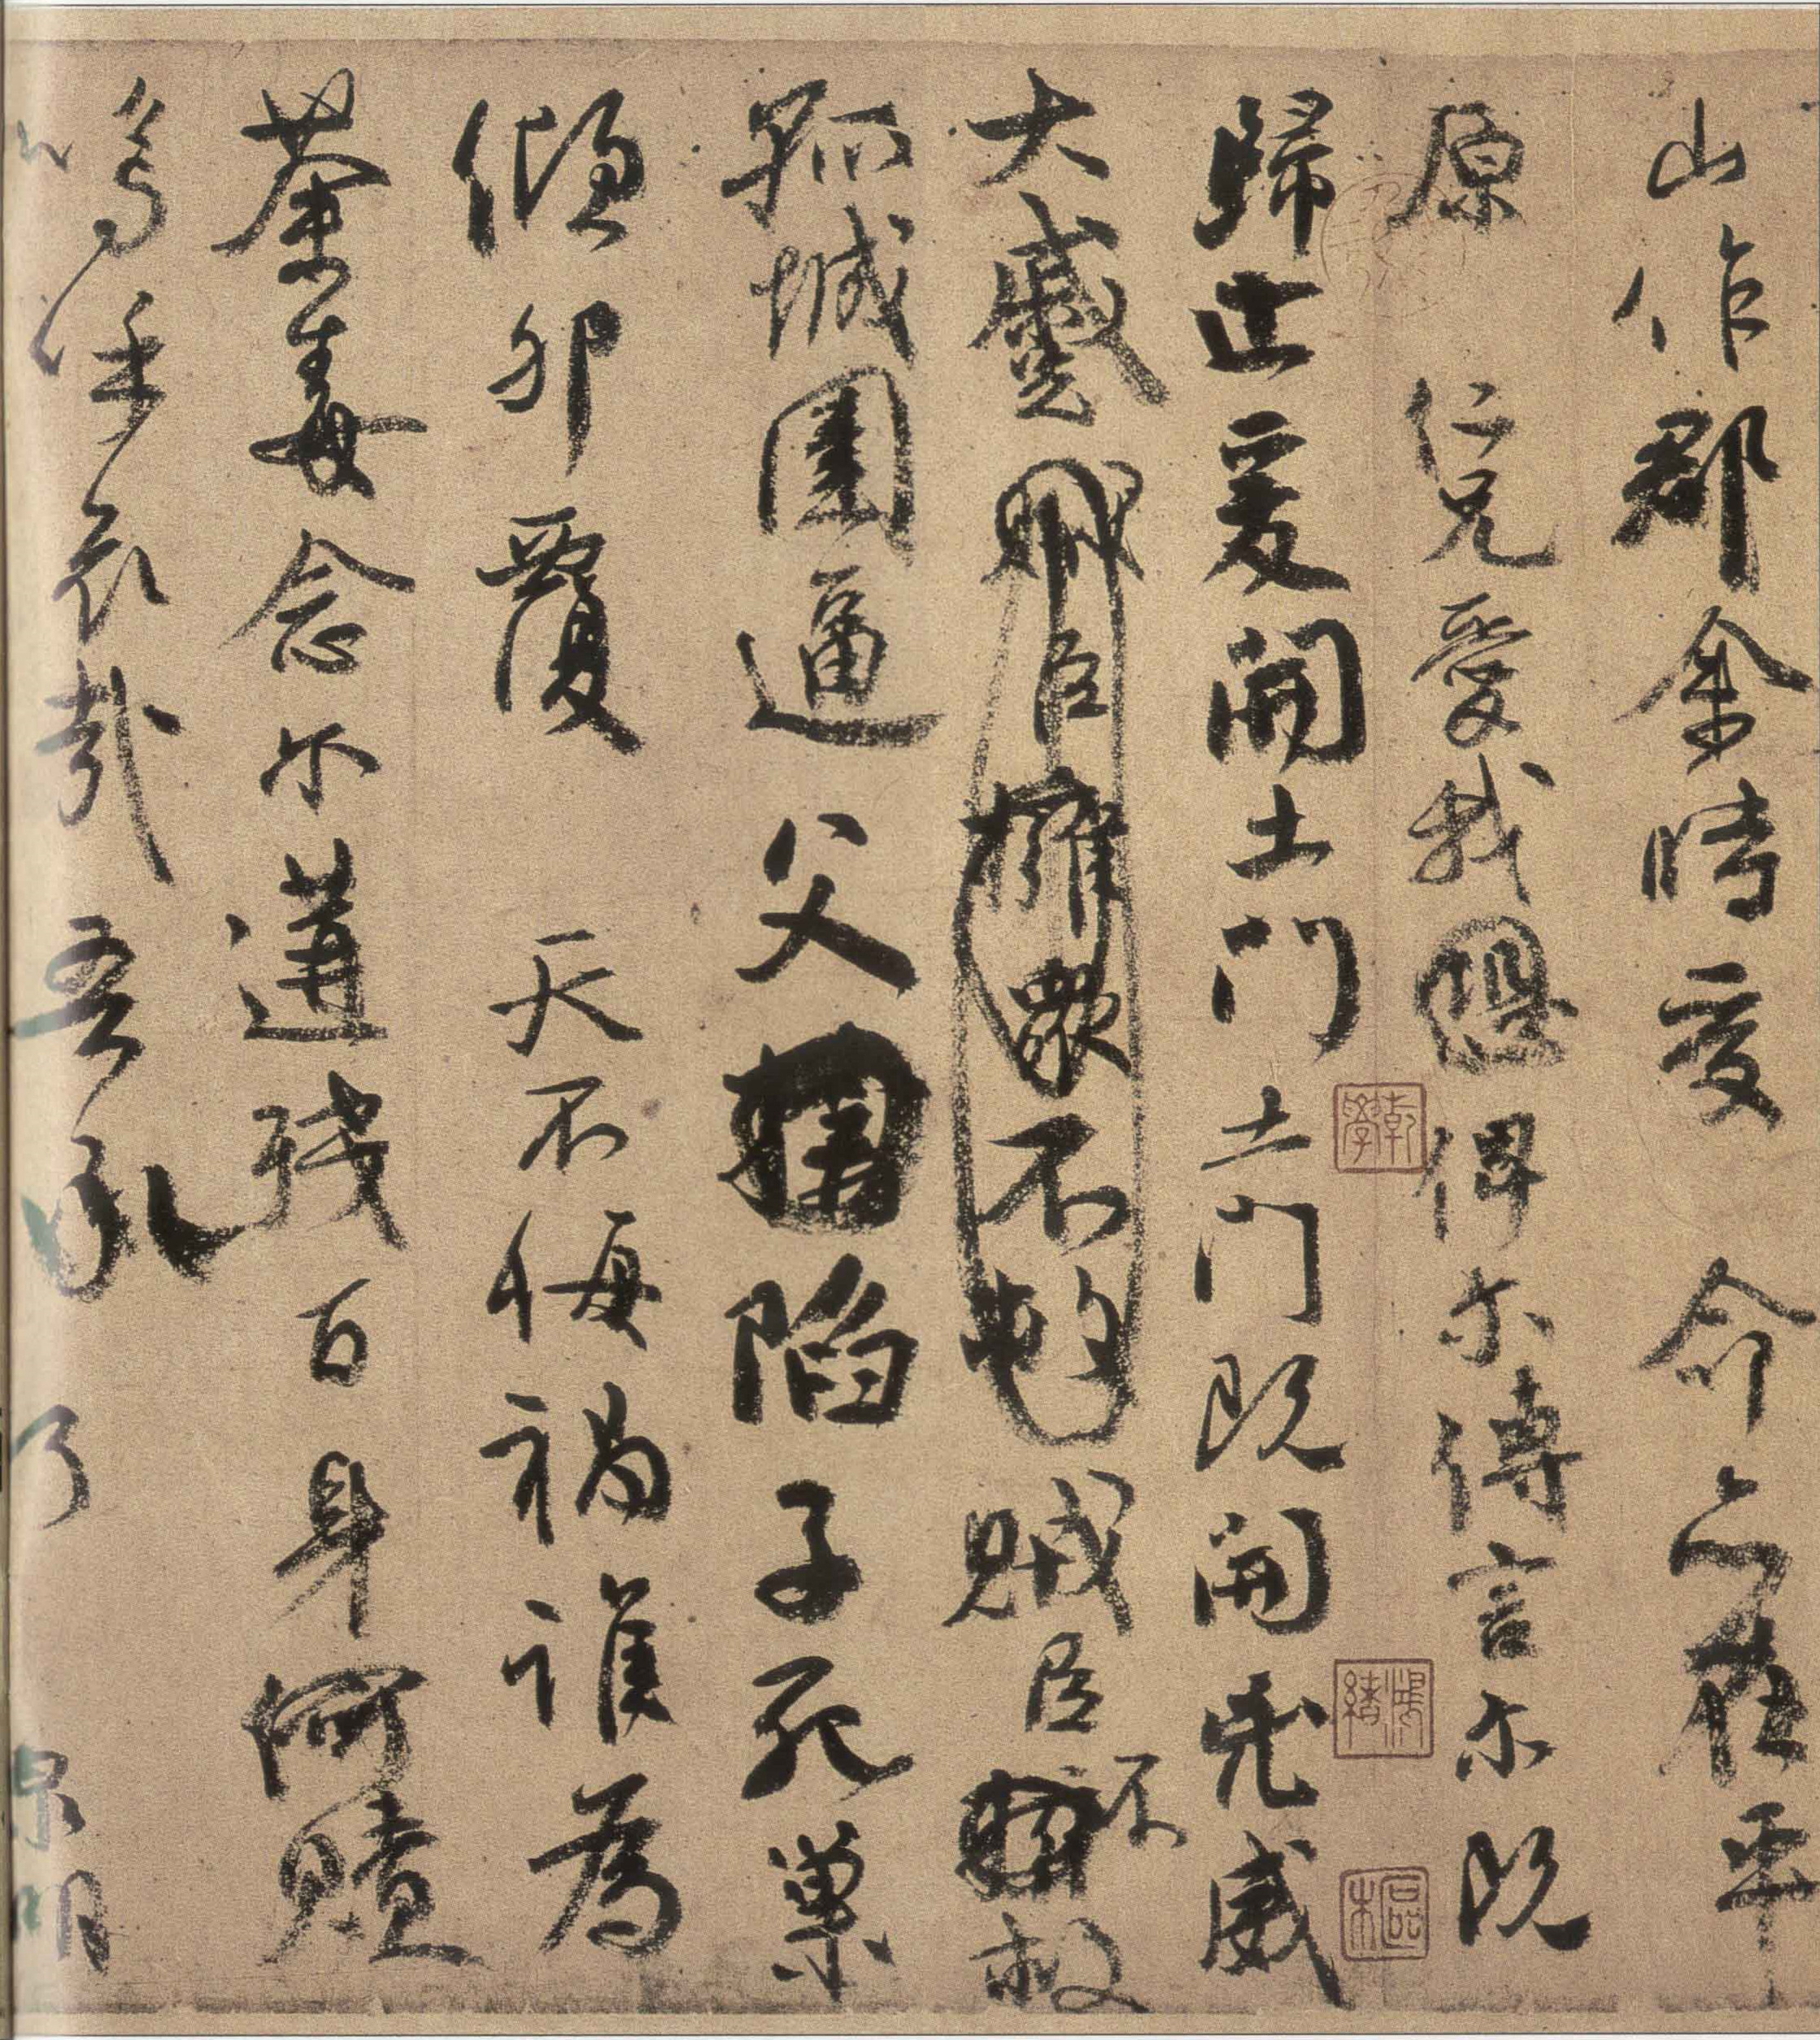 山作郡余時受命亦在平
原仁兄愛我恐俾尔傳言尔既
歸止爰開土門土門既開凶威
大蹙賊臣擁衆不救賊臣不救
孤城圍逼父陷子死巢
傾卵覆天不悔禍誰為
荼毒念尔遘殘百身何贖
嗚呼哀哉吾承